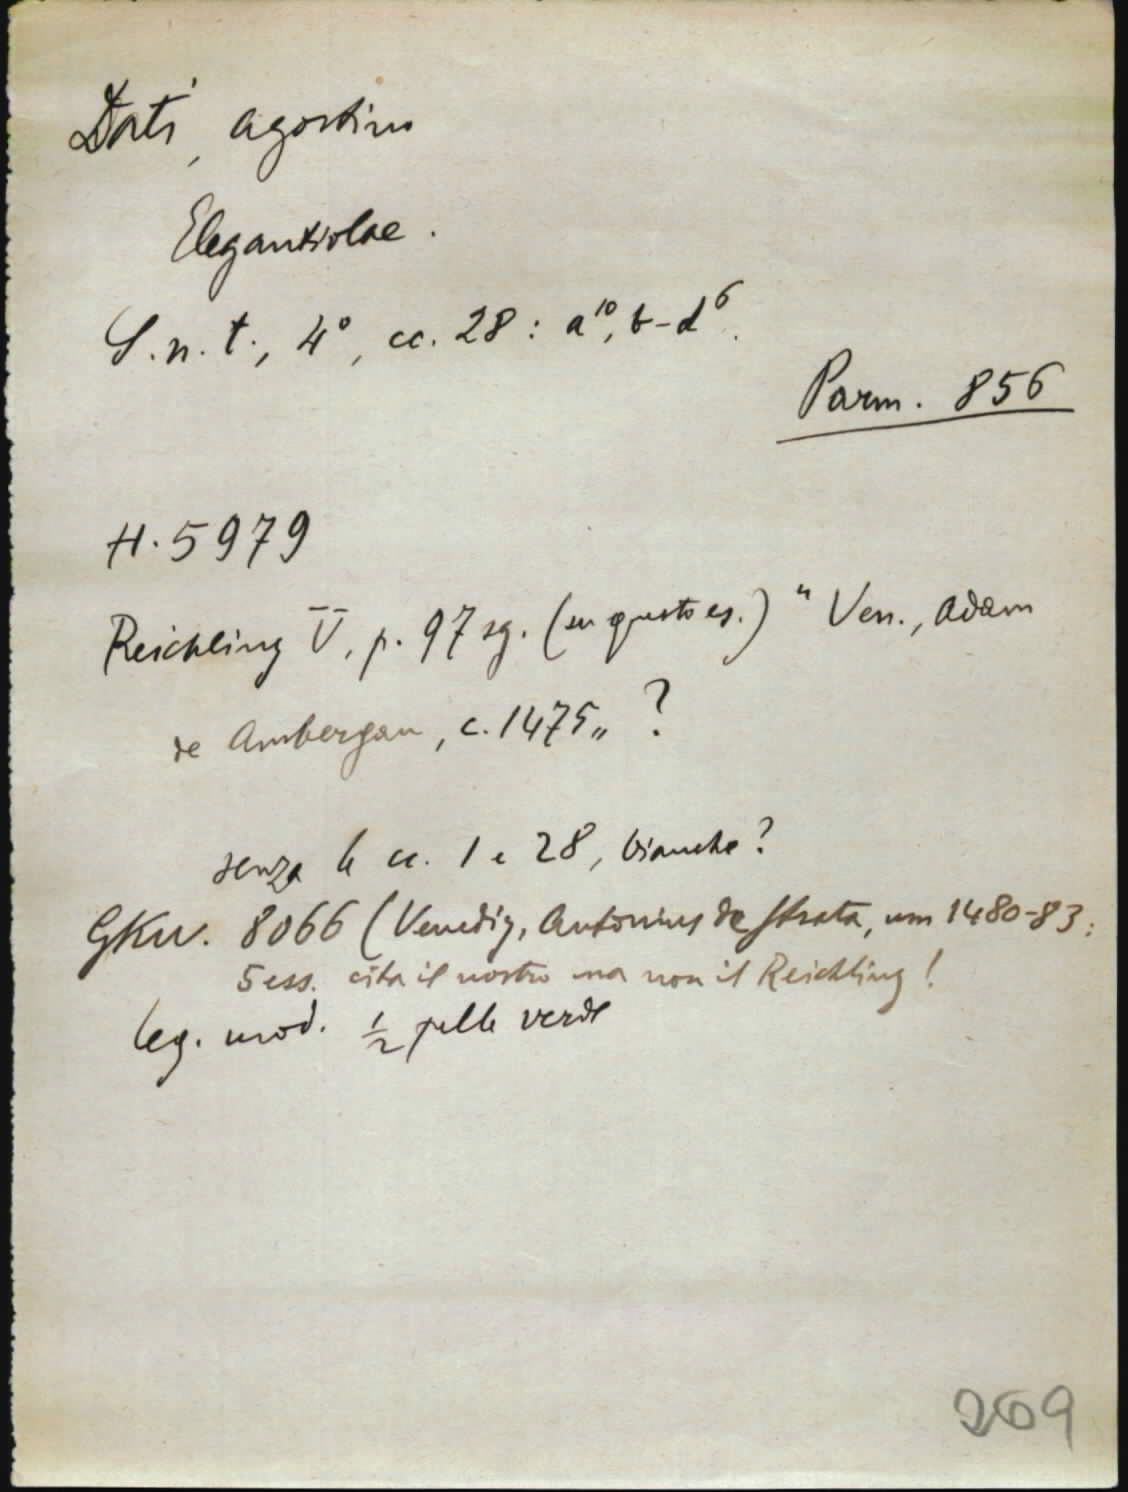 Dati, Agostino
Elegantiolae.
S. n. t., 4°, cc. 28: a¹⁰, b-d⁶.
Parm. 856
H. 5979
Reichling V, p. 97 sg. (su questo es.) "Ven., Adam
de Ambergau, c. 1475„ ?
senza le cc. 1 e 28, bianche?
GKW. 8066 (Venedig, Antonius de Strata, um 1480-83:
5 ess. cita il nostro ma non il Reichling!
leg. mod. ½ pelle verde
269